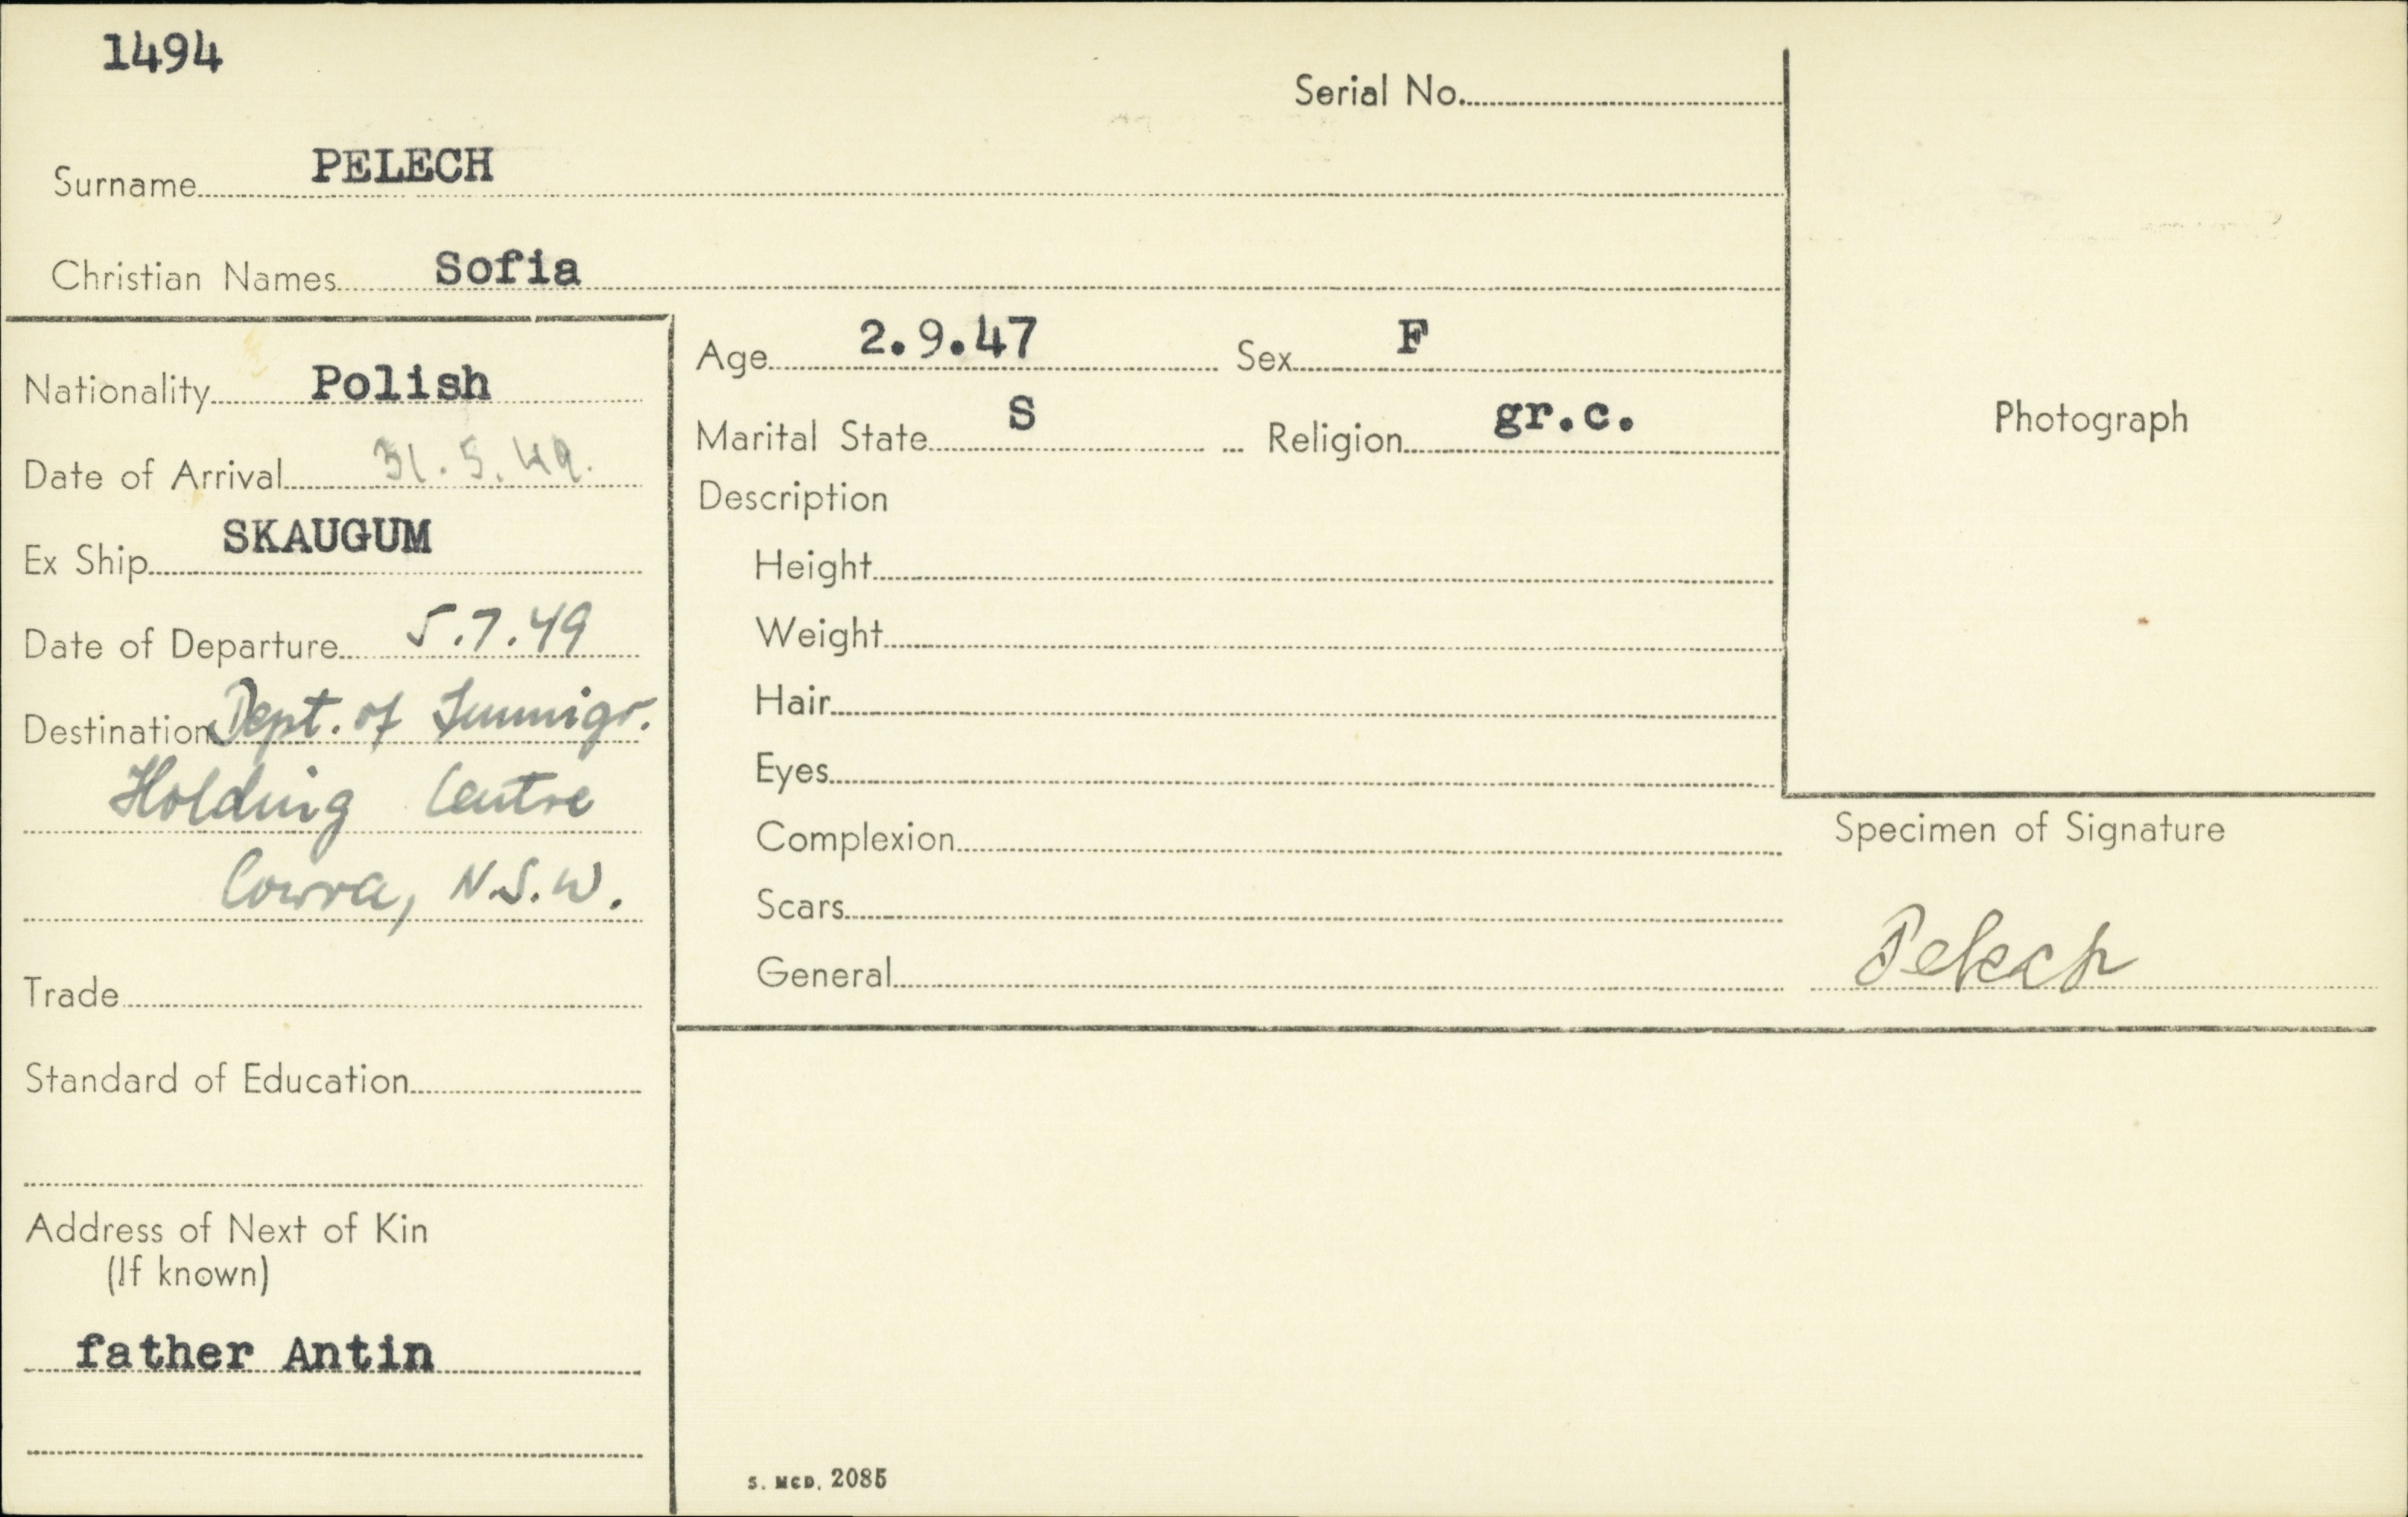 1494
Serial No.
Surname PELECH
Christian Names Sofia
Nationality Polish
Date of Arrival 31.5.49.
Ex Ship SKAUGUM
Date of Departure 5.7.49
Destination Dept. of Immigr.
Holding Centre
Cowra, N.S.W.
Trade
Standard of Education
Address of Next of Kin
(If known)
father Antin
Age 2.9.47 Sex F
Marital State S Religion gr.c.
Description
Height
Weight
Hair
Eyes
Complexion
Scars
General
Photograph
Specimen of Signature
Pelech
S. McD. 2085